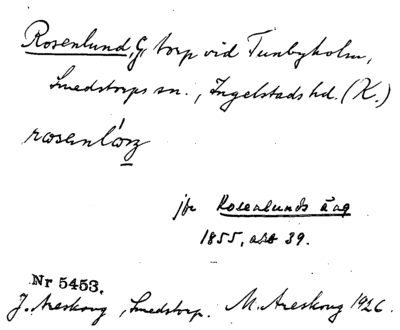 Rosenlund, G, torp vid Tunbyholm,
Smedstorps sn., Ingelstads hd. (K.)
rosenlosz
jfr Rosenlunds äng
1855, akt 39.
Nr 5453.
J. Areskoug, Smedstorp. M. Areskoug 1926.